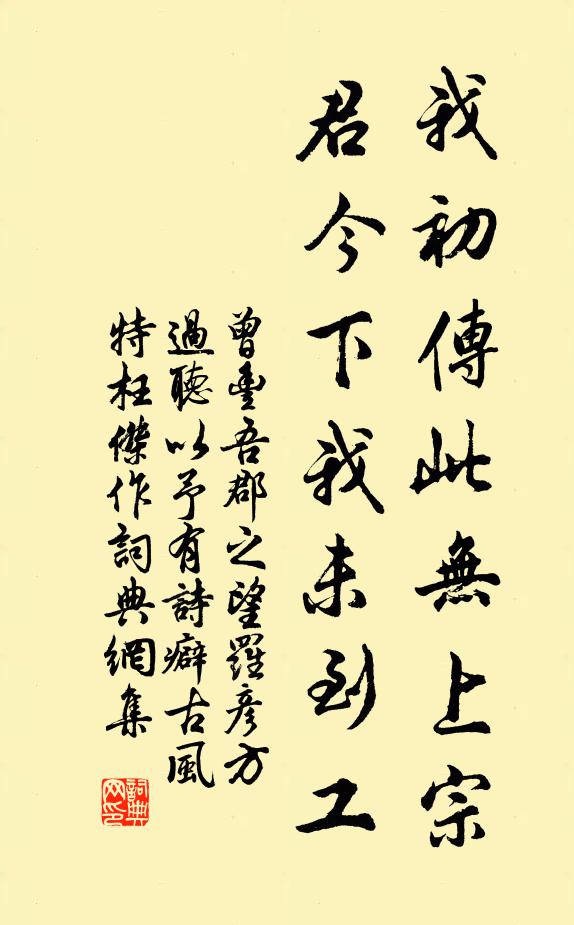 我初傳此無上宗
君今下我未到工
曾豐吾郡之望羅彥方
過聽以予有詩癖古風
特枉傑作詞典網集
詞典網印